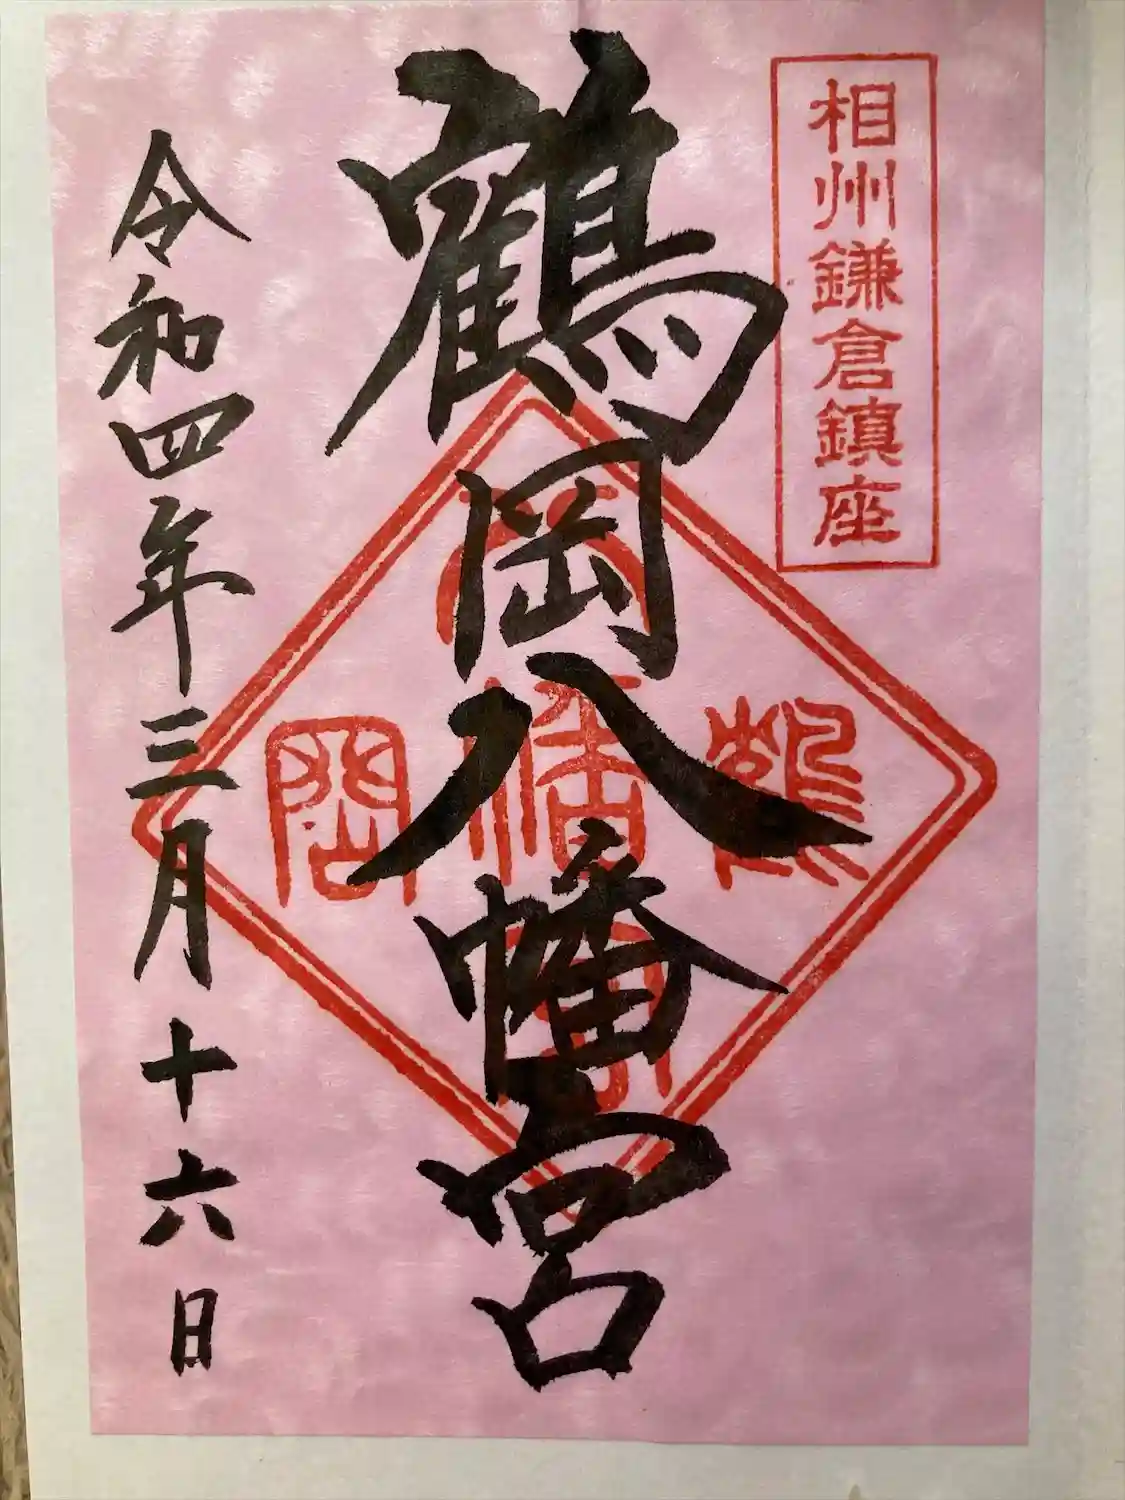 相州鎌倉鎮座
鶴岡八幡宮
令和四年三月十六日
鶴
八幡宮
岡